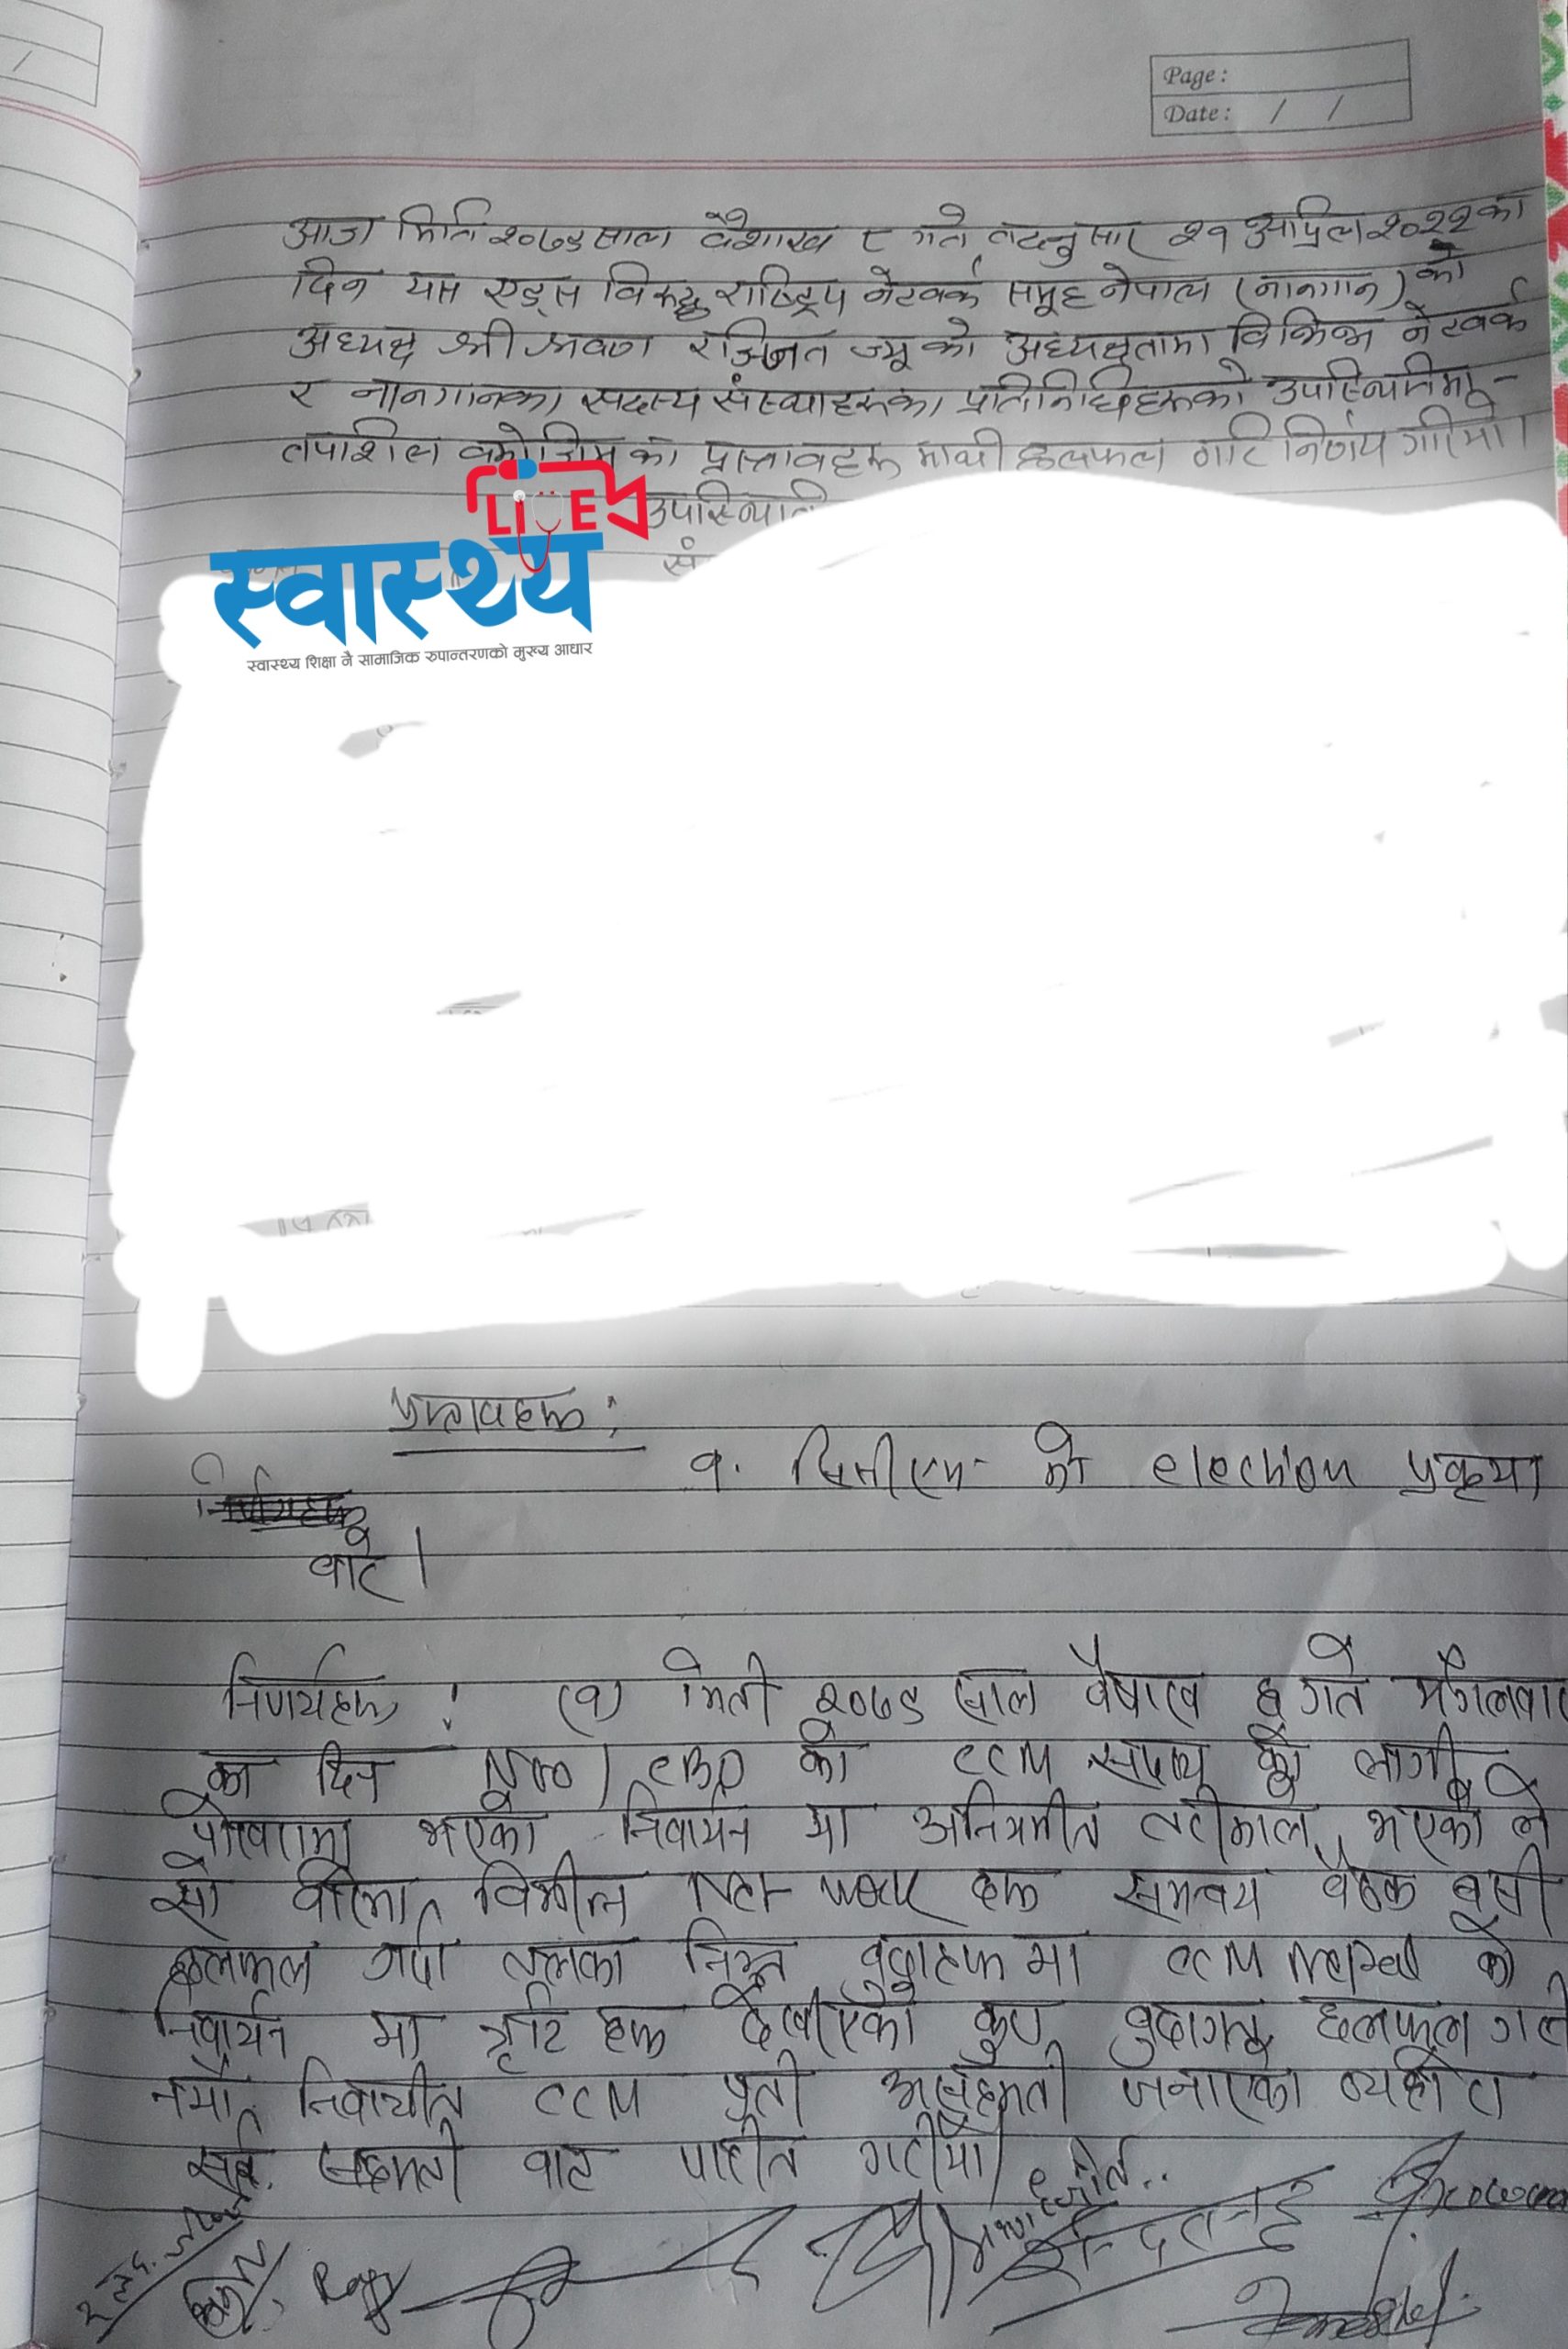 Page:
Date: / /
आज मिति २०७९ साल वैशाख ८ गते तदनुसार २१ अप्रिल २०२२ का
दिन यस एड्स विरुद्ध राष्ट्रिय नेटवर्क समूह नेपाल (नानगान) को
अध्यक्ष श्री श्रवण रञ्जित ज्यू को अध्यक्षतामा विभिन्न नेटवर्क
र नानगानका सदस्य संस्थाहरुका प्रतिनिधिहरुको उपस्थितिमा -
तपाशिल बमोजिम का प्रस्तावहरु माथी छलफल गरि निर्णय गरियो।
उपस्थिति
सं
LIVE
स्वास्थ्य
स्वास्थ्य शिक्षा नै सामाजिक रुपान्तरणको मुख्य आधार
प्रस्तावहरु :
१. सिसीएम को election प्रकृया
बारे।
निर्णयहरु : (१) मिती २०७९ साल वैषाख ६ गते मंगलवार
का दिन NGO / CBO को CCM सदस्य को लागी
पोखरामा भएको निर्वाचन मा अनियमीत तरीकाले भएको ले
सो बारेमा विभीन्न Net-work हरु समन्वय बैठक बसी
छलफल गर्दा तलका निम्न बुदाहरु मा CCM को
निर्वाचन मा त्रुटि हरु देखीएको कुरा छलफल
निर्वाचीत CCM प्रती असहमती जनाएको
सर्व सहमती बाट पारीत गरीयो।